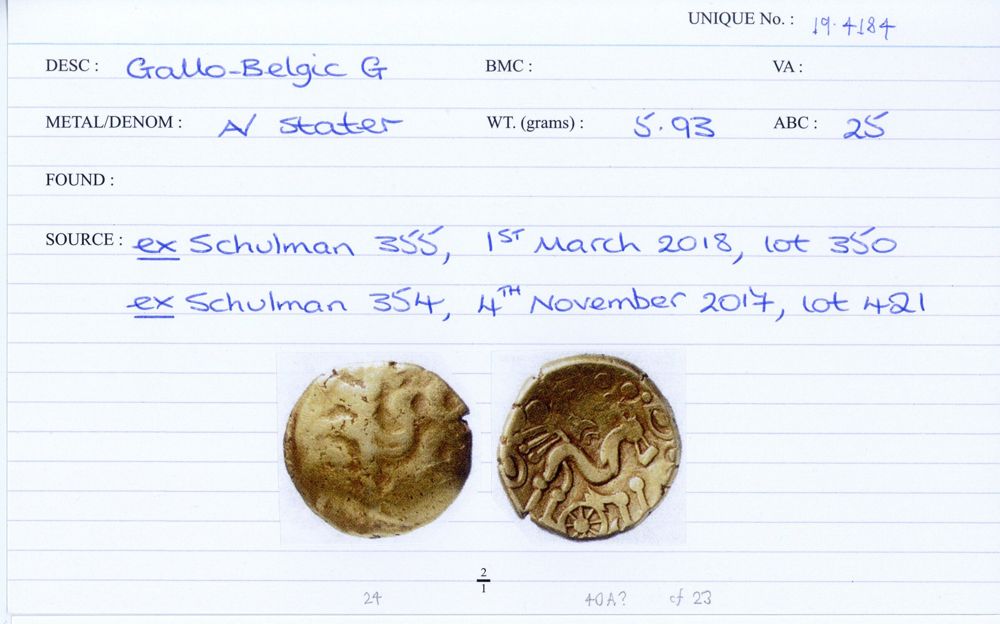 UNIQUE No. : 19.4184
DESC : Gallo-Belgic G BMC : VA :
METAL/DENOM : A/ Stater WT. (grams) : 5.93 ABC : 25
FOUND :
SOURCE : ex Schulman 355, 1ST March 2018, lot 350
ex Schulman 354, 4TH November 2017, lot 421
2
1
24 40A? cf 23